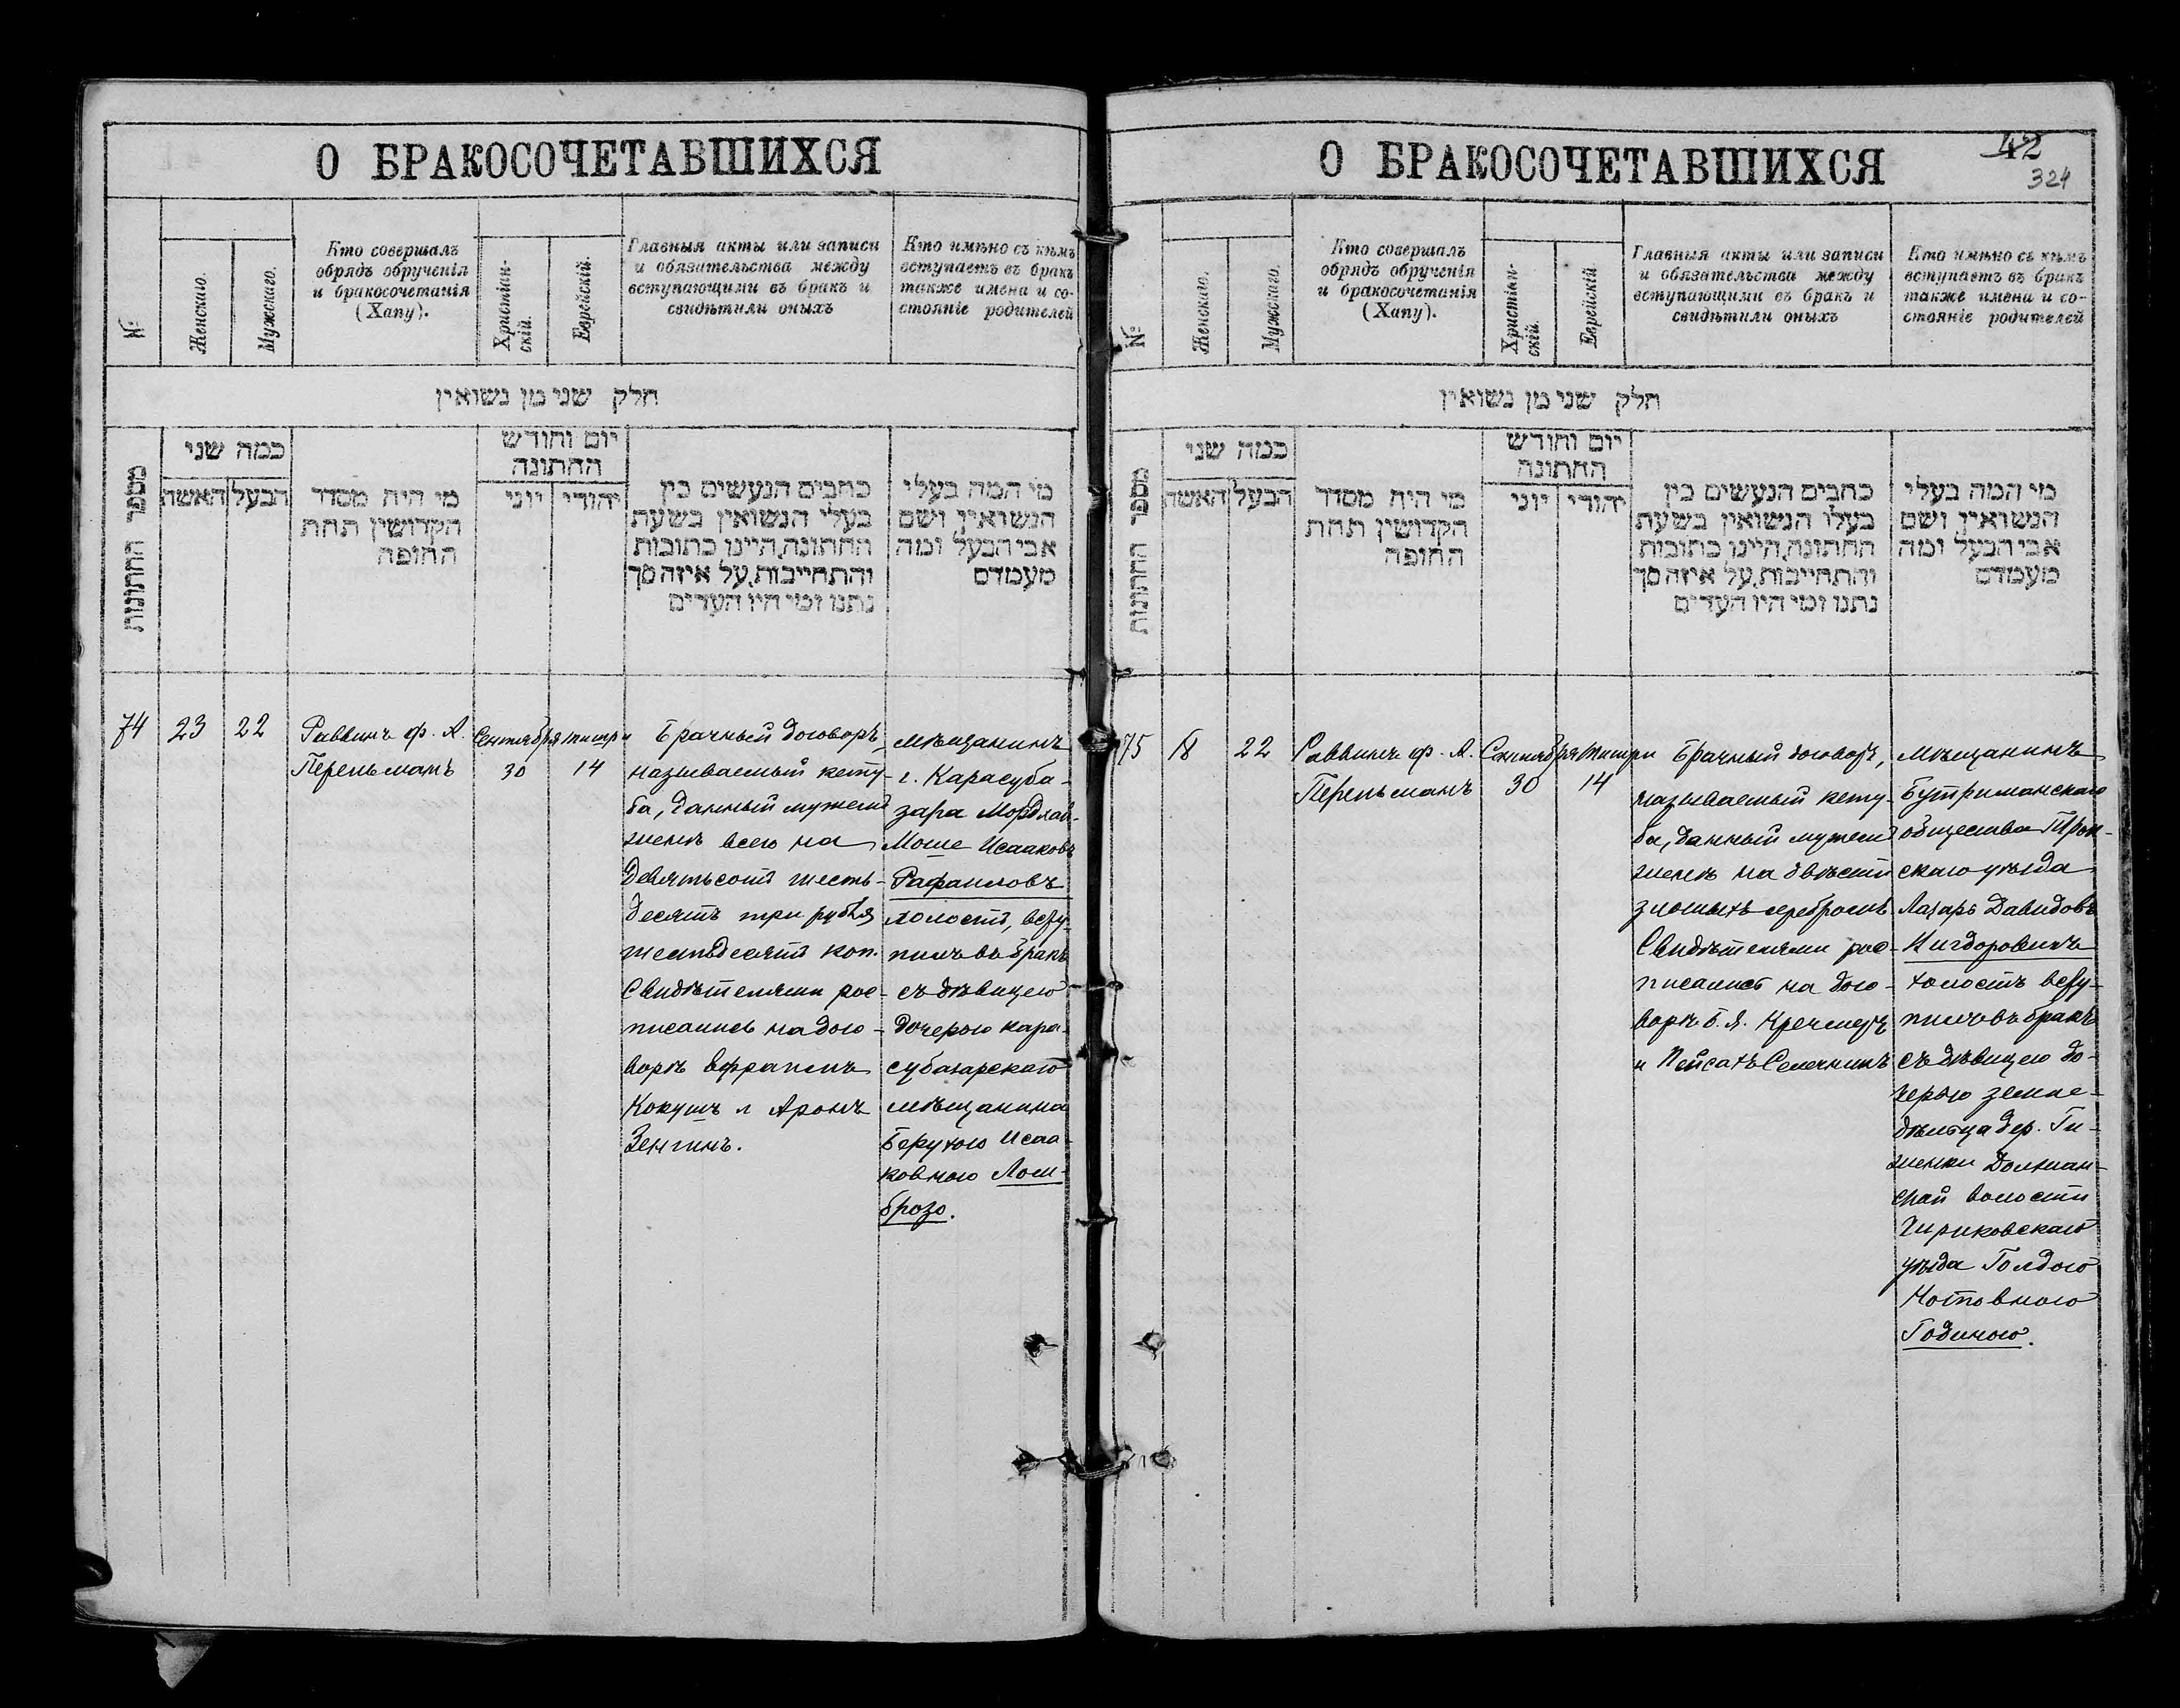 О БРАКОСОЧЕТАВШИХСЯ
№
Женскаго.
Мужскаго.
Кто совершалъ
обрядъ обрученія
и бракосочетанія
(Хапу).
Христіан-
скій.
Еврейскій.
Главныя акты или записи
и обязательства между
вступающими въ бракъ и
свидѣтили оныхъ
Кто имѣно съ кѣмъ
вступаетъ въ бракъ
также имена и со-
стояніе родителей
חלק שני מן נשואין
מספר החתונות
כמה שני
האשה
הבעל
מי היה מסדר
הקדושין תחת
החופה
יום וחודש
החתונה
יוני
יהודי
כתבים הנעשים בין
בעלי הנשואין בשעת
החתונה, היינו כתובות
והתחייבות, על איזה סך
נתנו ומי היו העדים
מי המה בעלי
הנשואין ושם
אבי הבעל ומה
מעמדם
74
23
22
Раввинъ Ф. А.
Перельманъ
Сентября
30
тишри
14
Брачный договоръ,
называемый кету-
ба, данный мужемъ
женѣ всего на
девятьсотъ шесть-
десятъ три рубля
шестьдесятъ коп.
Свидѣтелями рос-
писались на дого-
ворѣ Эфраимъ
Кокушъ и Аронъ
Зенгинъ.
мѣщанинъ
г. Карасуба-
зара Мордхай-
Моше Исааковъ
Рафаиловъ
холостъ, всту-
пилъ въ бракъ
съ дѣвицею
дочерью кара-
субазарскаго
мѣщанина
Берухою Исаа-
ковною Лом-
брозо.
О БРАКОСОЧЕТАВШИХСЯ
42
324
№
Женскаго.
Мужскаго.
Кто совершалъ
обрядъ обрученія
и бракосочетанія
(Хапу).
Христіан-
скій.
Еврейскій
Главныя акты или записи
и обязательства между
вступающими въ бракъ и
свидѣтили оныхъ
Кто имѣно съ кѣмъ
вступаетъ въ бракъ
также имена и со-
стояніе родителей
חלק שני מן נשואין
מספר החתונות
כמה שני
האשה
הבעל
מי היה מסדר
הקדושין תחת
החופה
יום וחודש
החתונה
יוני
יהודי
כתבים הנעשים בין
בעלי הנשואין בשעת
החתונה, היינו כתובות
והתחייבות, על איזה סך
נתנו ומי היו העדים
מי המה בעלי
הנשואין ושם
אבי הבעל ומה
מעמדם
75
18
22
Раввинъ Ф. А.
Перельманъ
Сентября
30
Тишри
14
Брачный договоръ,
называемый кету-
ба, данный мужемъ
женѣ на двѣсти
злотыхъ серебромъ
Свидѣтелями рос-
писались на дого-
ворѣ Б. Я. Кречмеръ
и Пейсахъ
Мѣщанинъ
Бутриманскаго
общества Трок-
скаго уѣзда
Лазарь Давидовъ
Кигдоровичъ
холостъ всту-
пилъ въ бракъ
съ дѣвицею до-
черью земле-
дѣльца дер. Ги-
ленки Должан-
ской волости
Чириковскаго
уѣзда Голдою
Нотовною
Годиною.